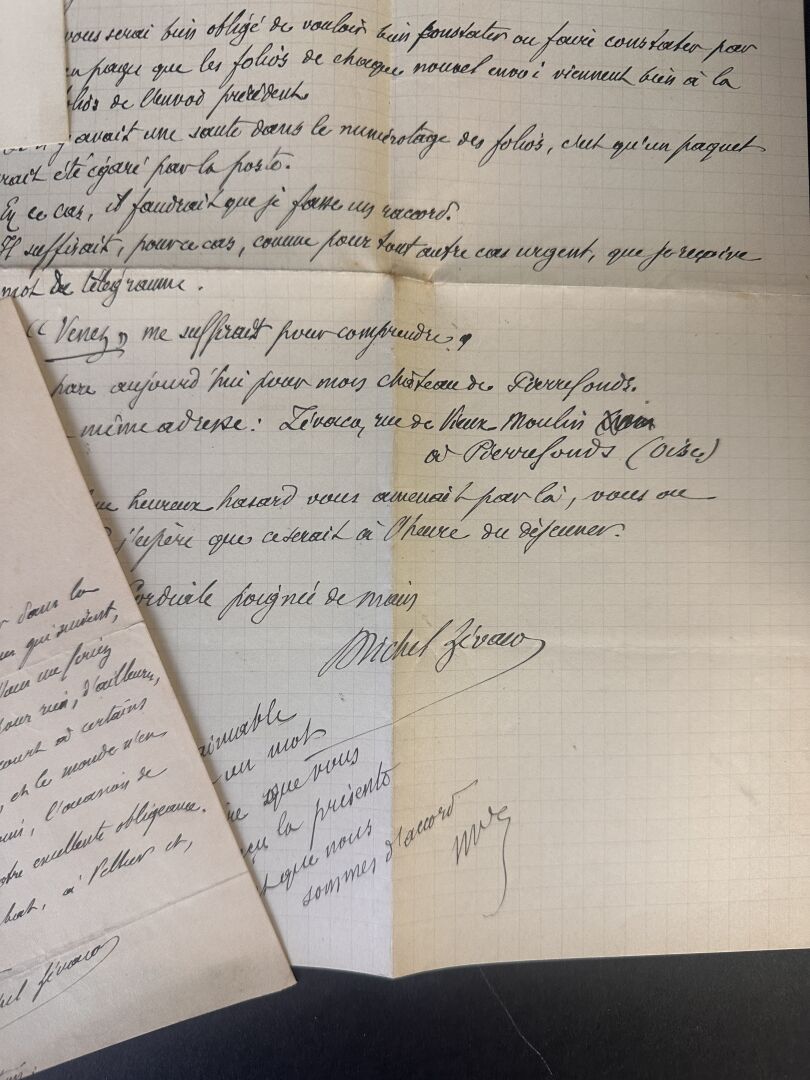 vous serai bien obligé de vouloir bien constater ou faire constater par
page que les folios de chaque nouvel envoi viennent bien à la
de l'envoi précédent.
avait une saute dans le numérotage des folios, c'est qu'un paquet
été égaré par la poste.
En ce cas, il faudrait que je fasse un raccord.
Il suffirait, pour ce cas, comme pour tout autre cas urgent, que je reçoive
mot de télégramme.
« Venez » me suffirait pour comprendre.
pars aujourd'hui pour mon château de Pierrefonds.
même adresse : Zévaco, rue de Vieux Moulin
à Pierrefonds (Oise)
heureux hasard vous amenait par là, vous ou
j'espère que ce serait à l'heure du déjeuner.
Cordiale poignée de main
Michel Zévaco
aimable
un mot
que vous
la présente
que nous
sommes d'accord
MZ
dans la
qui
Vous me feriez
pour moi, d'ailleurs,
court à certains
et le monde n'en
l'occasion de
excellente obligeance.
à Pellier et,
Zévaco